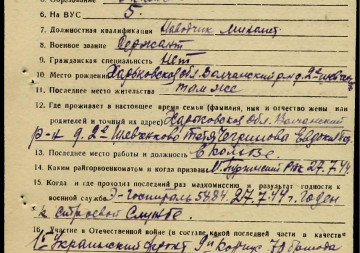 6. На ВУС 5.
7. Должностная квалификация Наводчик миномет.
8. Военное звание Сержант
9. Гражданская специальность Нет
10. Место рождения Харьковское обл. Волчанский р-н д. 2е
11. Последнее место жительства
12. Где проживает в настоящее время семья (фамилия, имя и отчество жены или
родителей и точный их адрес) Харьковское обл. Волчанский
р-н д. 2е Шевченково
13. Последнее место работы и должность в колхозе
14. Каким райгорвоенкоматом и когда призван РВК 27.7.44г
15. Когда и где проходил раз медкомиссию, результат годности к
военной службе Э-Госпиталь 5484. 27.7.44г Годен
к строевой службе.
16. Участие в Отечественной войне (в составе какой последней части в качестве
1й Украинский фронт 9й Корпус бригада